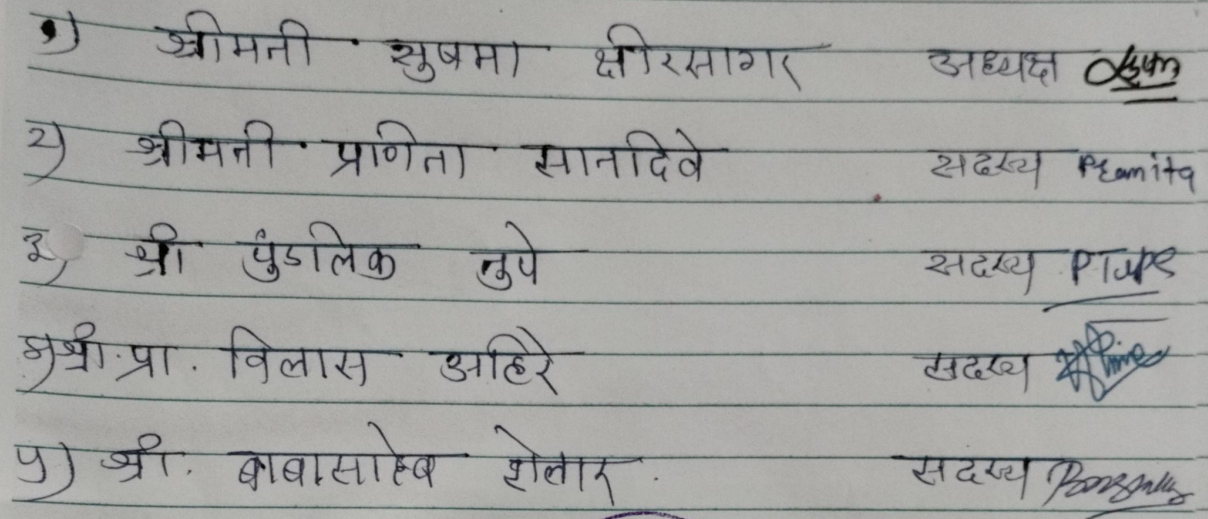 १) श्रीमती सुषमा क्षीरसागर अध्यक्ष
२) श्रीमती प्रणिता सानदिवे सदस्य Pranita
३) श्री पुंडलिक तुपे सदस्य PTupe
४) श्री. प्रा. विलास अहिरे सदस्य
५) श्री. बाबासाहेब शेलार सदस्य